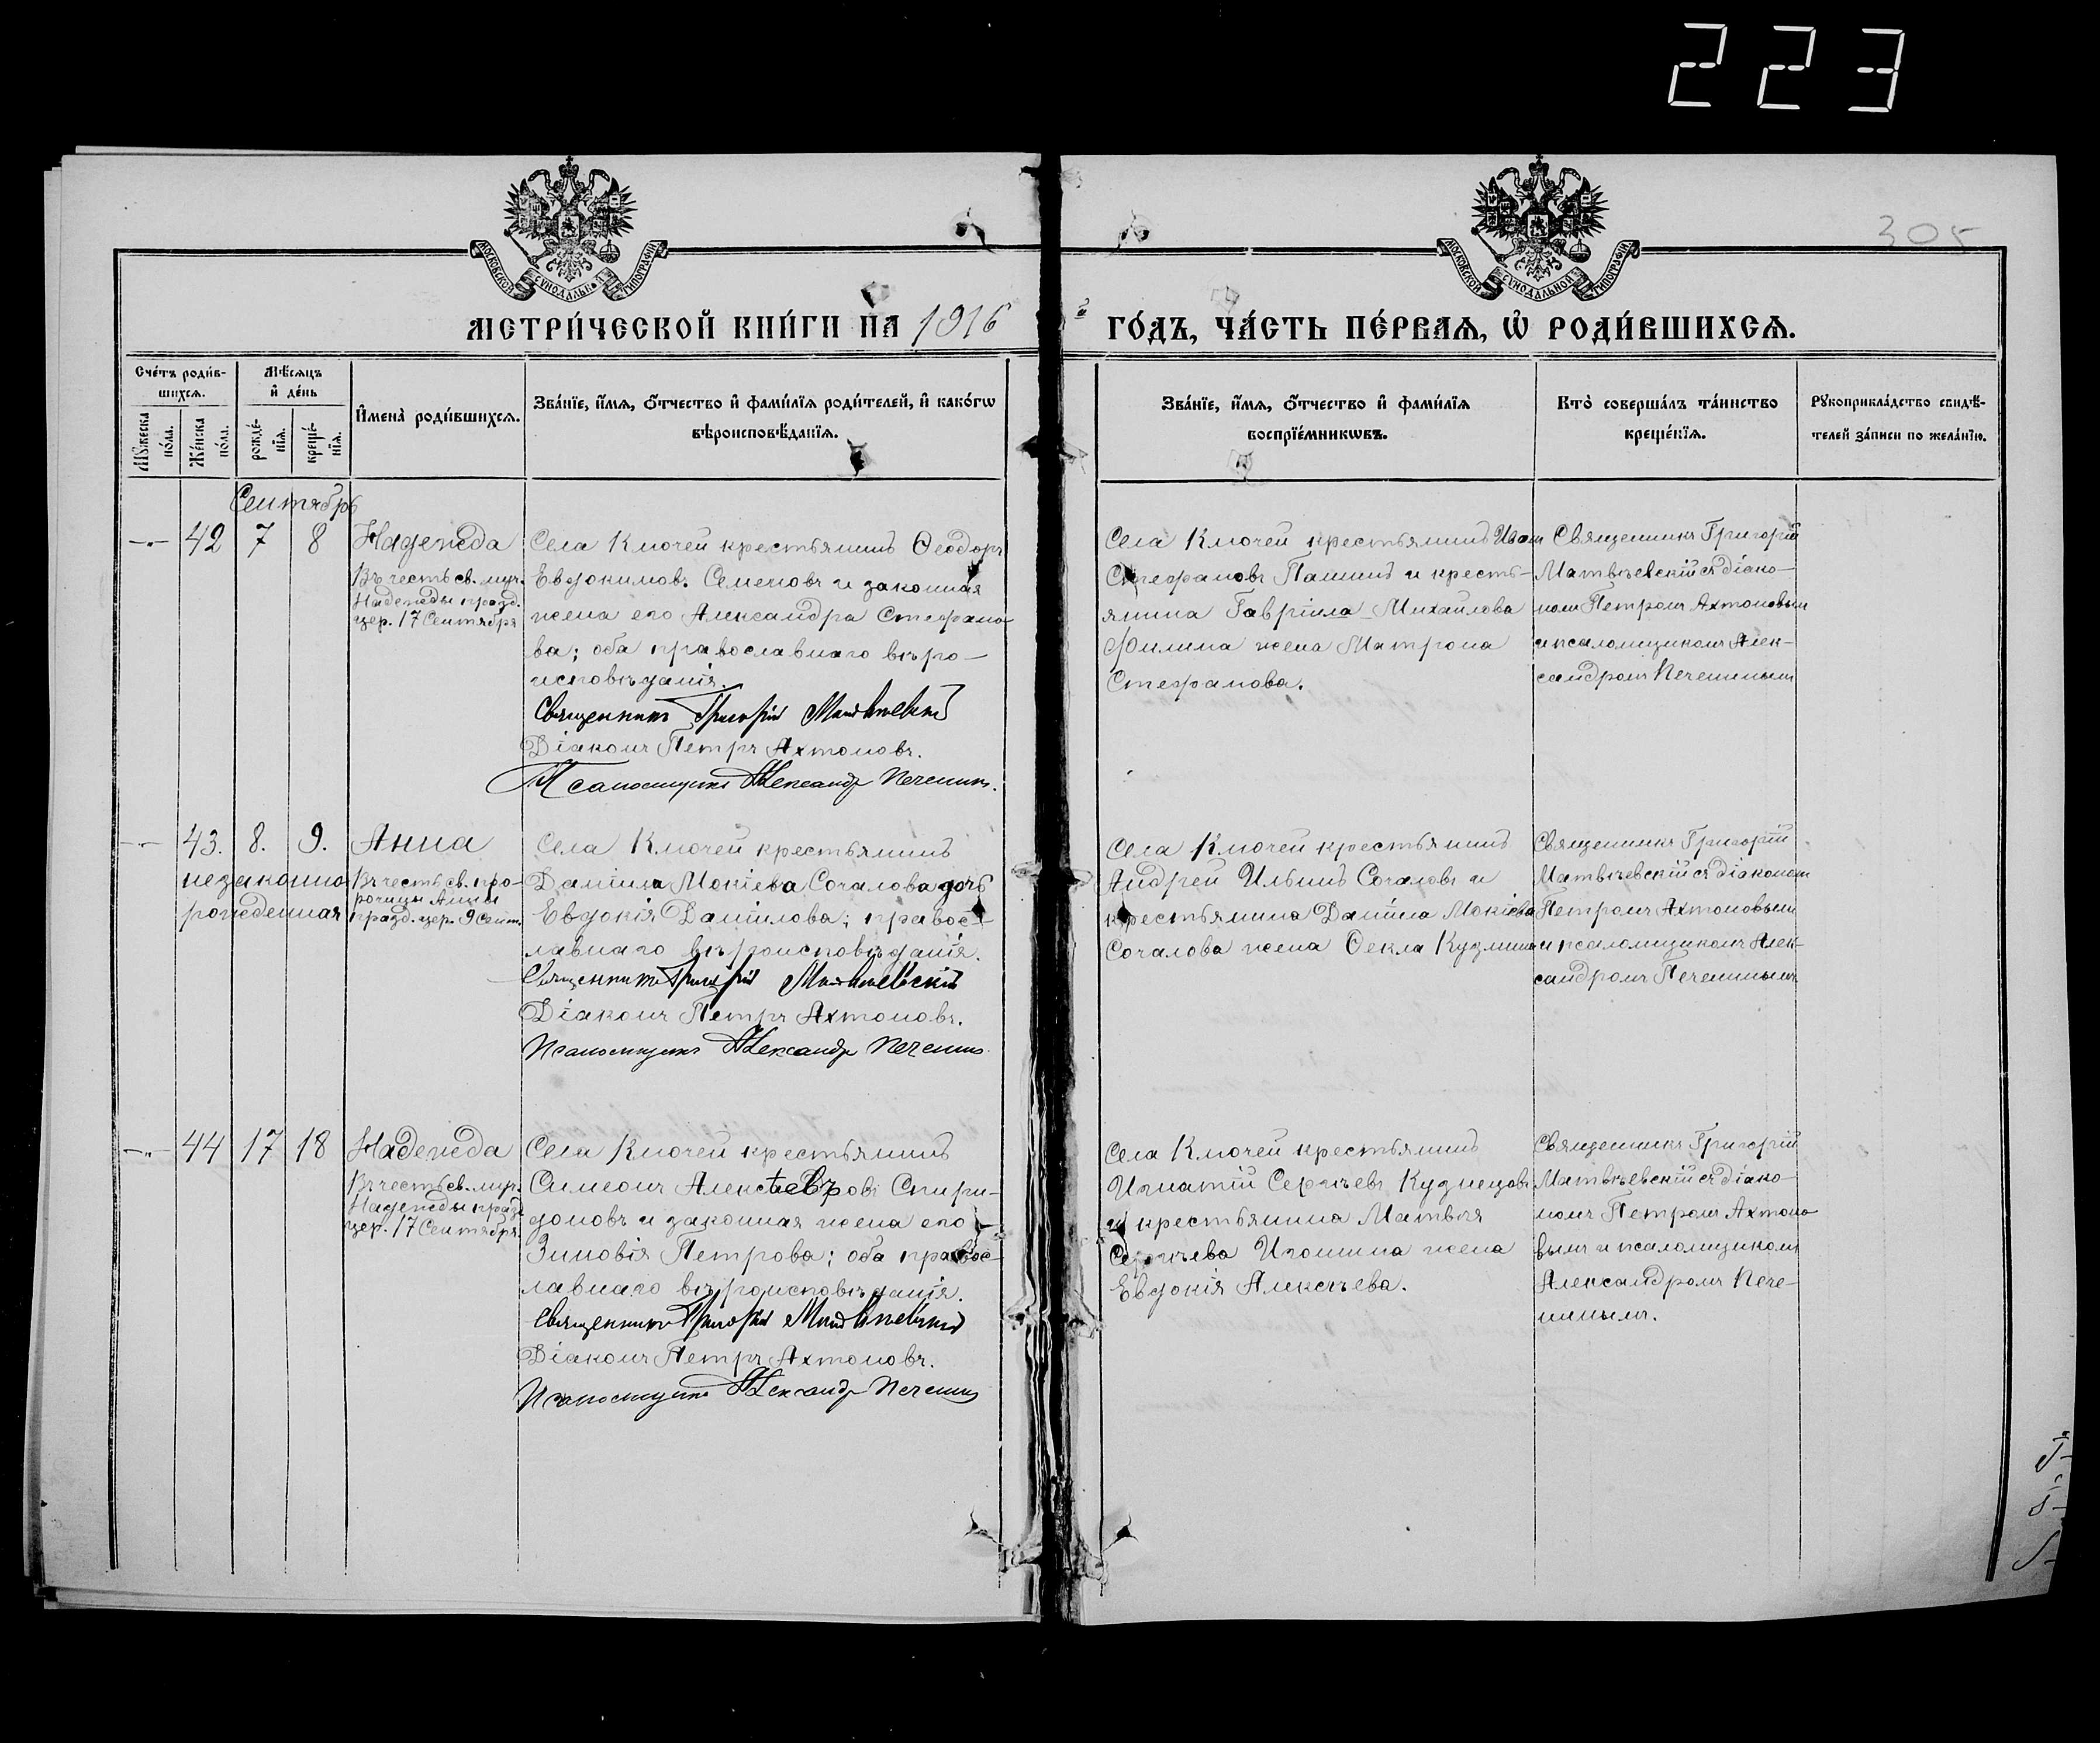 223
305
МОСКОВСКОЙ СѴНОДАЛЬНОЙ ТИПОГРАФІИ
МОСКОВСКОЙ СѴНОДАЛЬНОЙ ТИПОГРАФІИ
МЕТРИ́ЧЕСКОЙ КНИ́ГИ НА 1916 г ГО́ДЪ, ЧА́СТЬ ПЕ́РВАѦ, Ѡ҆ РОДИ́ВШИХСѦ.
Сче́тъ роди́в-
шихсѧ.
Мꙋ́жеска по́ла.
Же́нска по́ла.
Мѣ́сѧцъ
и҆ де́нь
рожде́-
нїѧ.
креще́-
нїѧ.
И҆мена̀ роди́вшихсѧ.
Зва́нїе, и҆́мѧ, ѻ҆́тчество и҆ фами́лїѧ роди́телей, и҆ како́гѡ
вѣроисповѣ́данїѧ.
Зва́нїе, и҆́мѧ, ѻ҆́тчество и҆ фами́лїѧ
воспрїе́мникѡвъ.
Кто̀ соверша́лъ та́инство
креще́нїѧ.
Рꙋкоприкла́дство свидѣ́-
телей за́писи по жела́нїю.
Сентябрь
42 7 8 Надежда
Въ честь св. муч.
Надежды празд.
цер. 17 Сентября
Села Ключей крестьянинъ Ѳеодоръ
Евдокимовъ Семеновъ и законная
жена его Александра Стефано-
ва; оба православнаго вѣро-
исповѣданія.
Священникъ Григорій Матвѣевскій
Діаконъ Петръ Ахтоновъ.
Псаломщикъ Александръ Печенинъ.
Села Ключей крестьянинъ Иван
Стефановъ Пашинъ и кресть-
янина Гавріила Михаилова
Филина жена Матрона
Стефанова.
Священникъ Григорій
Матвѣевскій съ діако-
номъ Петромъ Ахтоновым
и псаломщикомъ Алек-
сандромъ Печенинымъ
43. 8. 9. Анна
незаконно
рожденная
Въ честь св. про-
рочицы Анны
празд. цер. 9 Сент.
Села Ключей крестьянинъ
Даніила Мокіева Сочалова дочь
Евдокія Даніилова; правос-
лавнаго вѣроисповѣданія.
Священникъ Григорій Матвѣевскій
Діаконъ Петръ Ахтоновъ.
Псаломщикъ Александръ Печенинъ
Села Ключей крестьянинъ
Андрей Ильинъ Сочаловъ и
крестьянина Даніила Мокіева
Сочалова жена Ѳекла Кузмина
Священникъ Григорій
Матвѣевскій съ діаконом
Петромъ Ахтоновымъ
и псаломщикомъ Алек-
сандромъ Печенинымъ
44 17 18 Надежда
Въ честь св. муч.
Надежды празд
цер. 17 Сентября
Села Ключей крестьянинъ
Симеонъ Спири-
доновъ и законная жена его
Зиновія Петрова; оба правос-
лавнаго вѣроисповѣданія.
Священникъ Григорій Матвѣевскій
Діаконъ Петръ Ахтоновъ.
Псаломщикъ Александръ Печенинъ
Села Ключей крестьянинъ
Игнатій Сергѣевъ Кузнецовъ
и крестьянина Матвѣя
Сергѣева Игошина жена
Евдокія Алексѣева.
Священникъ Григорій
Матвѣевскій съ діако-
номъ Петромъ Ахтоно-
вымъ и псаломщикомъ
Александромъ Пече-
нинымъ.